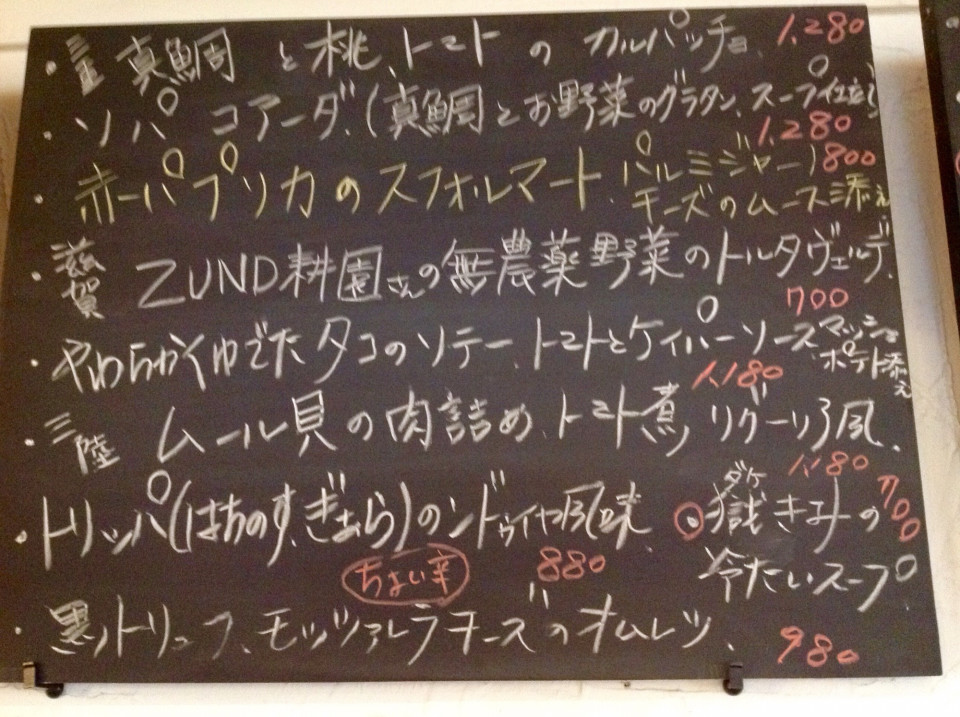 ・三重 真鯛と桃、トマトのカルパッチョ、1,280
・ソパ コアーダ、(真鯛とお野菜のグラタン、スープ仕立て) 1,280
・赤パプリカのスフォルマート、パルミジャーノチーズのムース添え 800
・滋賀 ZUND耕園さんの無農薬野菜のトルタヴェルデ、700
・やわらかくゆでたタコのソテー、トマトとケイパーソース、マッシュポテト添え 1,180
・三陸 ムール貝の肉詰め、トマト煮、リグーリア風、1,180
・トリッパ(はちのす、ぎあら)のンドゥイヤ風味、ちょい辛 880
・嶽(ダケ)きみの冷たいスープ 700
・黒トリュフ、モッツァレラチーズのオムレツ、980